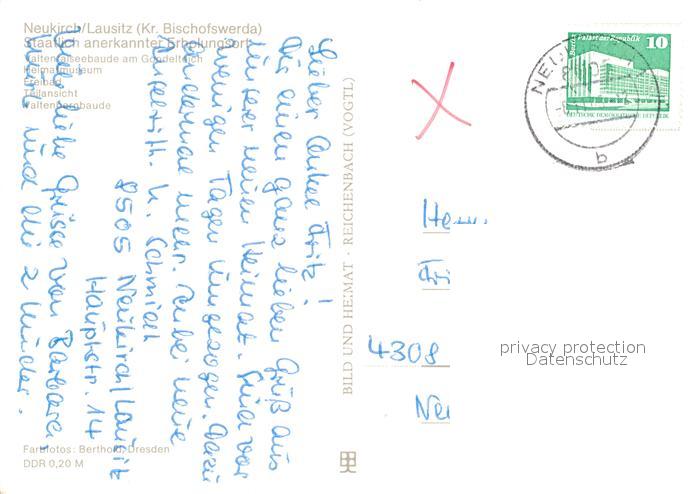 Neukirch/Lausitz (Kr. Bischofswerda)
Staatlich anerkannter Erholungsort
Valtentalseebaude am Gondelteich
Heimatmuseum
Freibad
Teilansicht
Valtenbergbaude
Lieber Onkel Fritz!
Dir einen ganz lieben Gruß aus
unserer neuen Heimat. Sind vor
wenigen Tagen umgezogen. Dazu
ein andermal mehr. Anbei neue
Anschrift. H. Schmidt
8505 Neukirch/Lausitz
Hauptstr. 14
Viele liebe Grüsse von Barbara,
und die 2 Kinder.
Farbfotos: Berthold, Dresden
DDR 0,20 M
BILD UND HEIMAT · REICHENBACH (VOGTL)
10
Berlin, Palast der Republik
DEUTSCHE DEMOKRATISCHE REPUBLIK
NEU
b
Herr
4308
privacy protection
Datenschutz